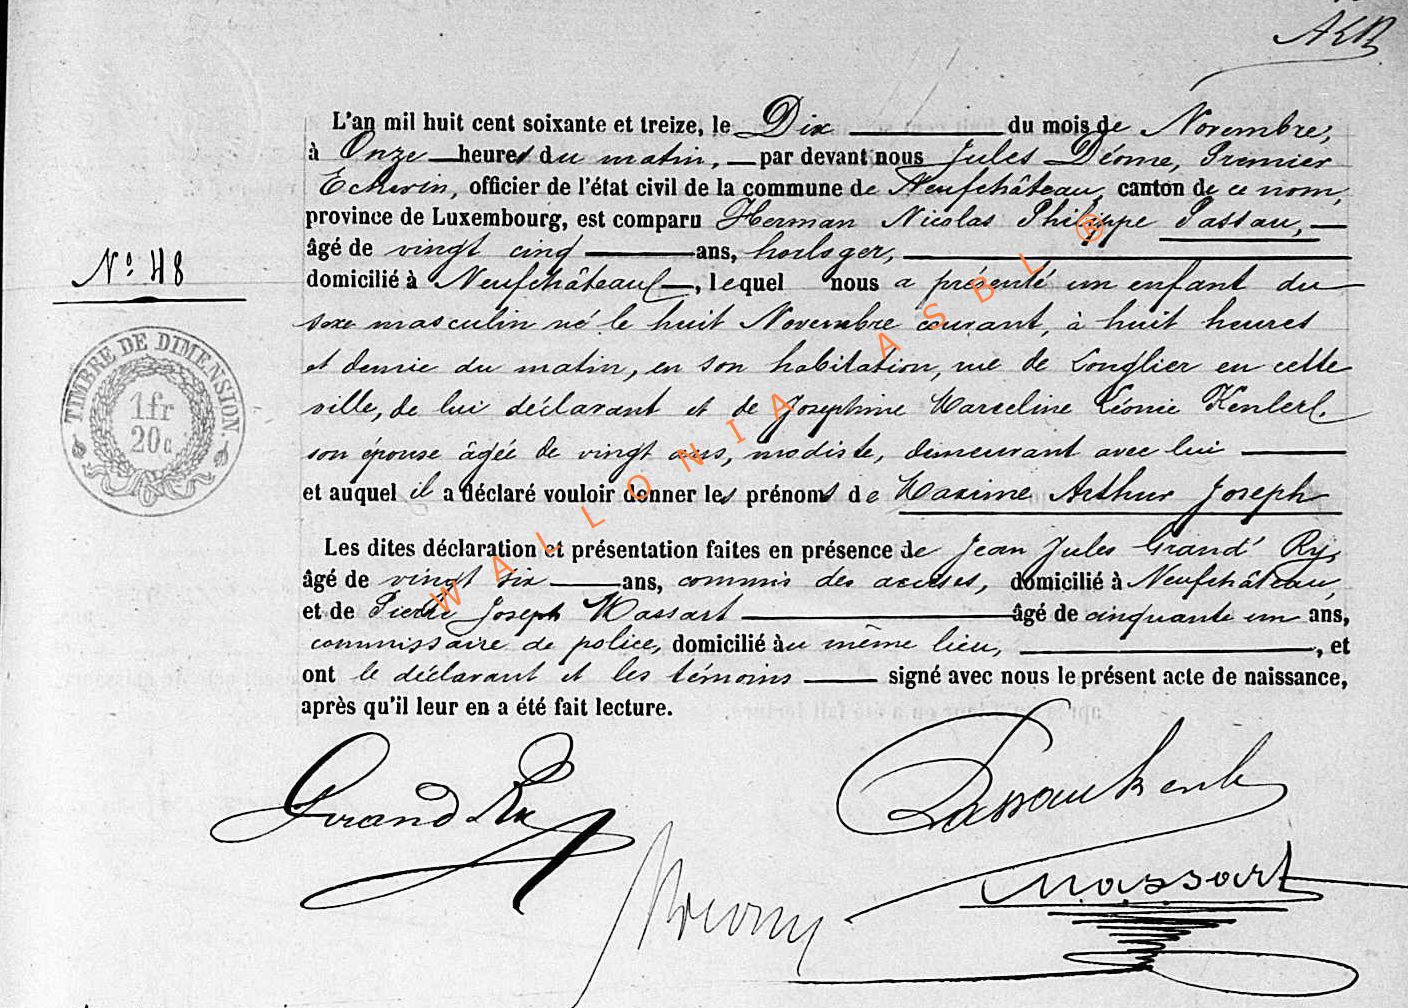 AGR
L'an mil huit cent soixante et treize, le Dix du mois de Novembre,
à Onze heures du matin, par devant nous Jules Déome, Premier
Echevin, officier de l'état civil de la commune de Neufchâteau, canton de ce nom,
province de Luxembourg, est comparu Herman Nicolas Philippe Passau,
âgé de vingt cinq ans, horloger,
domicilié à Neufchâteau, lequel nous a présenté un enfant du
sexe masculin né le huit Novembre courant, à huit heures
et demie du matin, en son habitation, rue de Longlier en cette
ville, de lui déclarant et de Josephine Marceline Léonie
son épouse âgée de vingt ans, modiste, demeurant avec lui
et auquel il a déclaré vouloir donner les prénoms de Maxime Arthur Joseph
Les dites déclaration et présentation faites en présence de Jean Jules Grand' Ry,
âgé de vingt six ans, commis des accises, domicilié à Neufchâteau,
et de Pierre Joseph Massart âgé de cinquante un ans,
commissaire de police, domicilié au même lieu, et
ont le déclarant et les témoins signé avec nous le présent acte de naissance,
après qu'il leur en a été fait lecture.
N° 48
TIMBRE DE DIMENSION.
1fr
20c
WALLONIA ASBL ®
Grand Ry
Massart